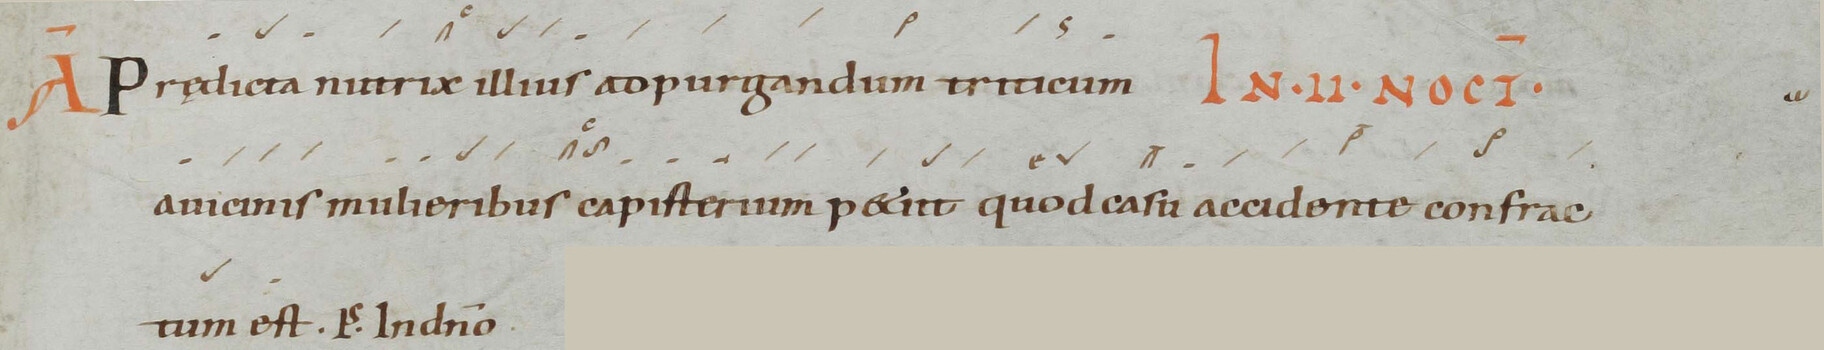 Ā Prędicta nutrix illius ad purgandum triticum IN·II·NOCT̄·
a uicinis mulieribus capisterium p&iit quod casu accidente confrac
tum est. Ps. In dn̄o